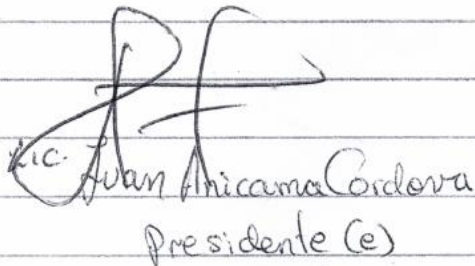 Lic. Juan Anicama Cordova
Presidente (e)